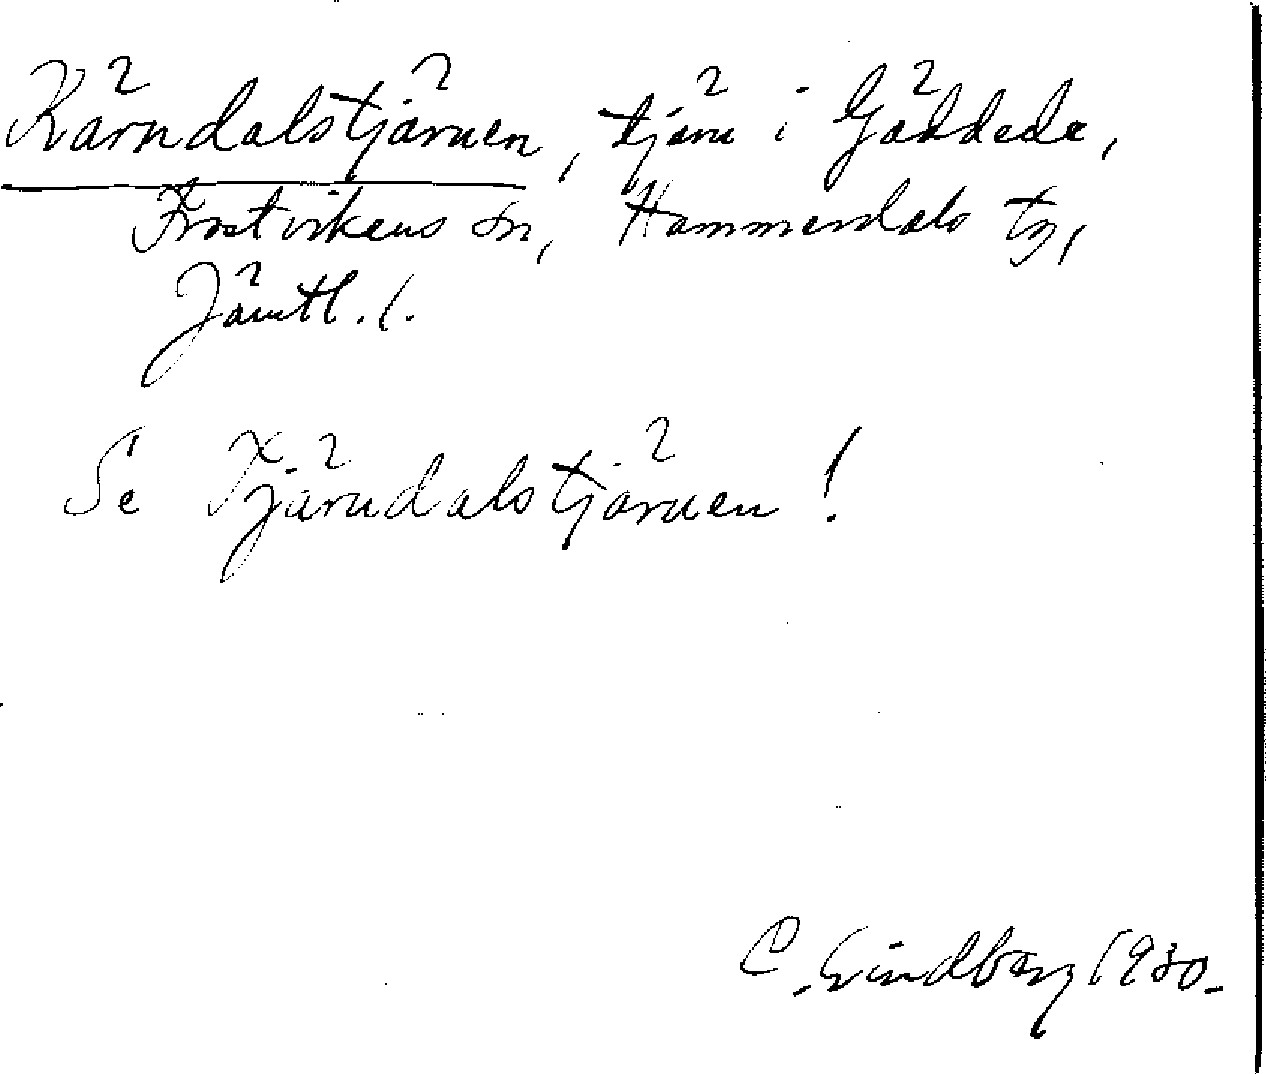 Kärndalstjärnen, tjärn i Gäddede,
Frostvikens sn, Hammerdals tg,
Jämtl. l.
Se Tjärndalstjärnen!
C. Lindberg 1930.